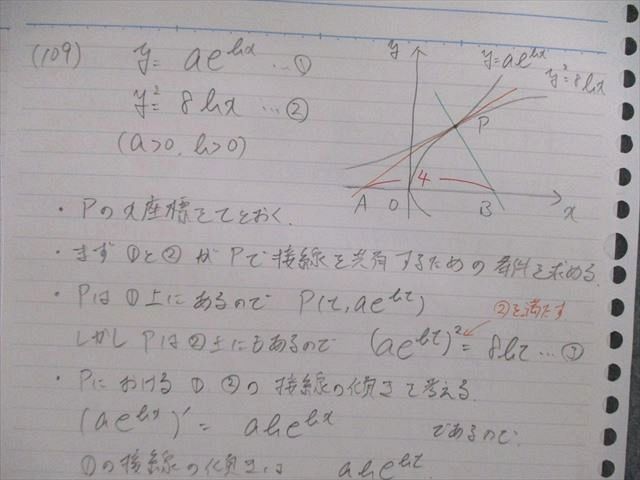 (109) y = ae^{bx} …①
y² = 8bx …②
(a>0, b>0)
y
y=ae^{bx}
y²=8bx
P
4
A O B x
・Pのx座標をtとおく.
・まず ①と② が Pで接線を共有するための 条件を求める.
・Pは ①上にあるので P(t, ae^{bt})
②を満たす
しかし Pは ②上にもあるので (ae^{bt})² = 8bt …③
・Pにおける ① ②の 接線の傾きを考える.
(ae^{bx})' = abe^{bx} であるので
①の接線の傾きは abe^{bt}